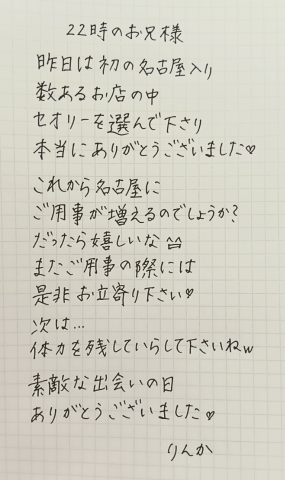 22時のお兄様
昨日は初の名古屋入り
数あるお店の中
セオリーを選んで下さり
本当にありがとうございました♡
これから名古屋に
ご用事が増えるのでしょうか?
だったら嬉しいな^^
またご用事の際には
是非お立寄り下さい♡
次は...
体力を残していらして下さいねw
素敵な出会いの日
ありがとうございました♡
りんか